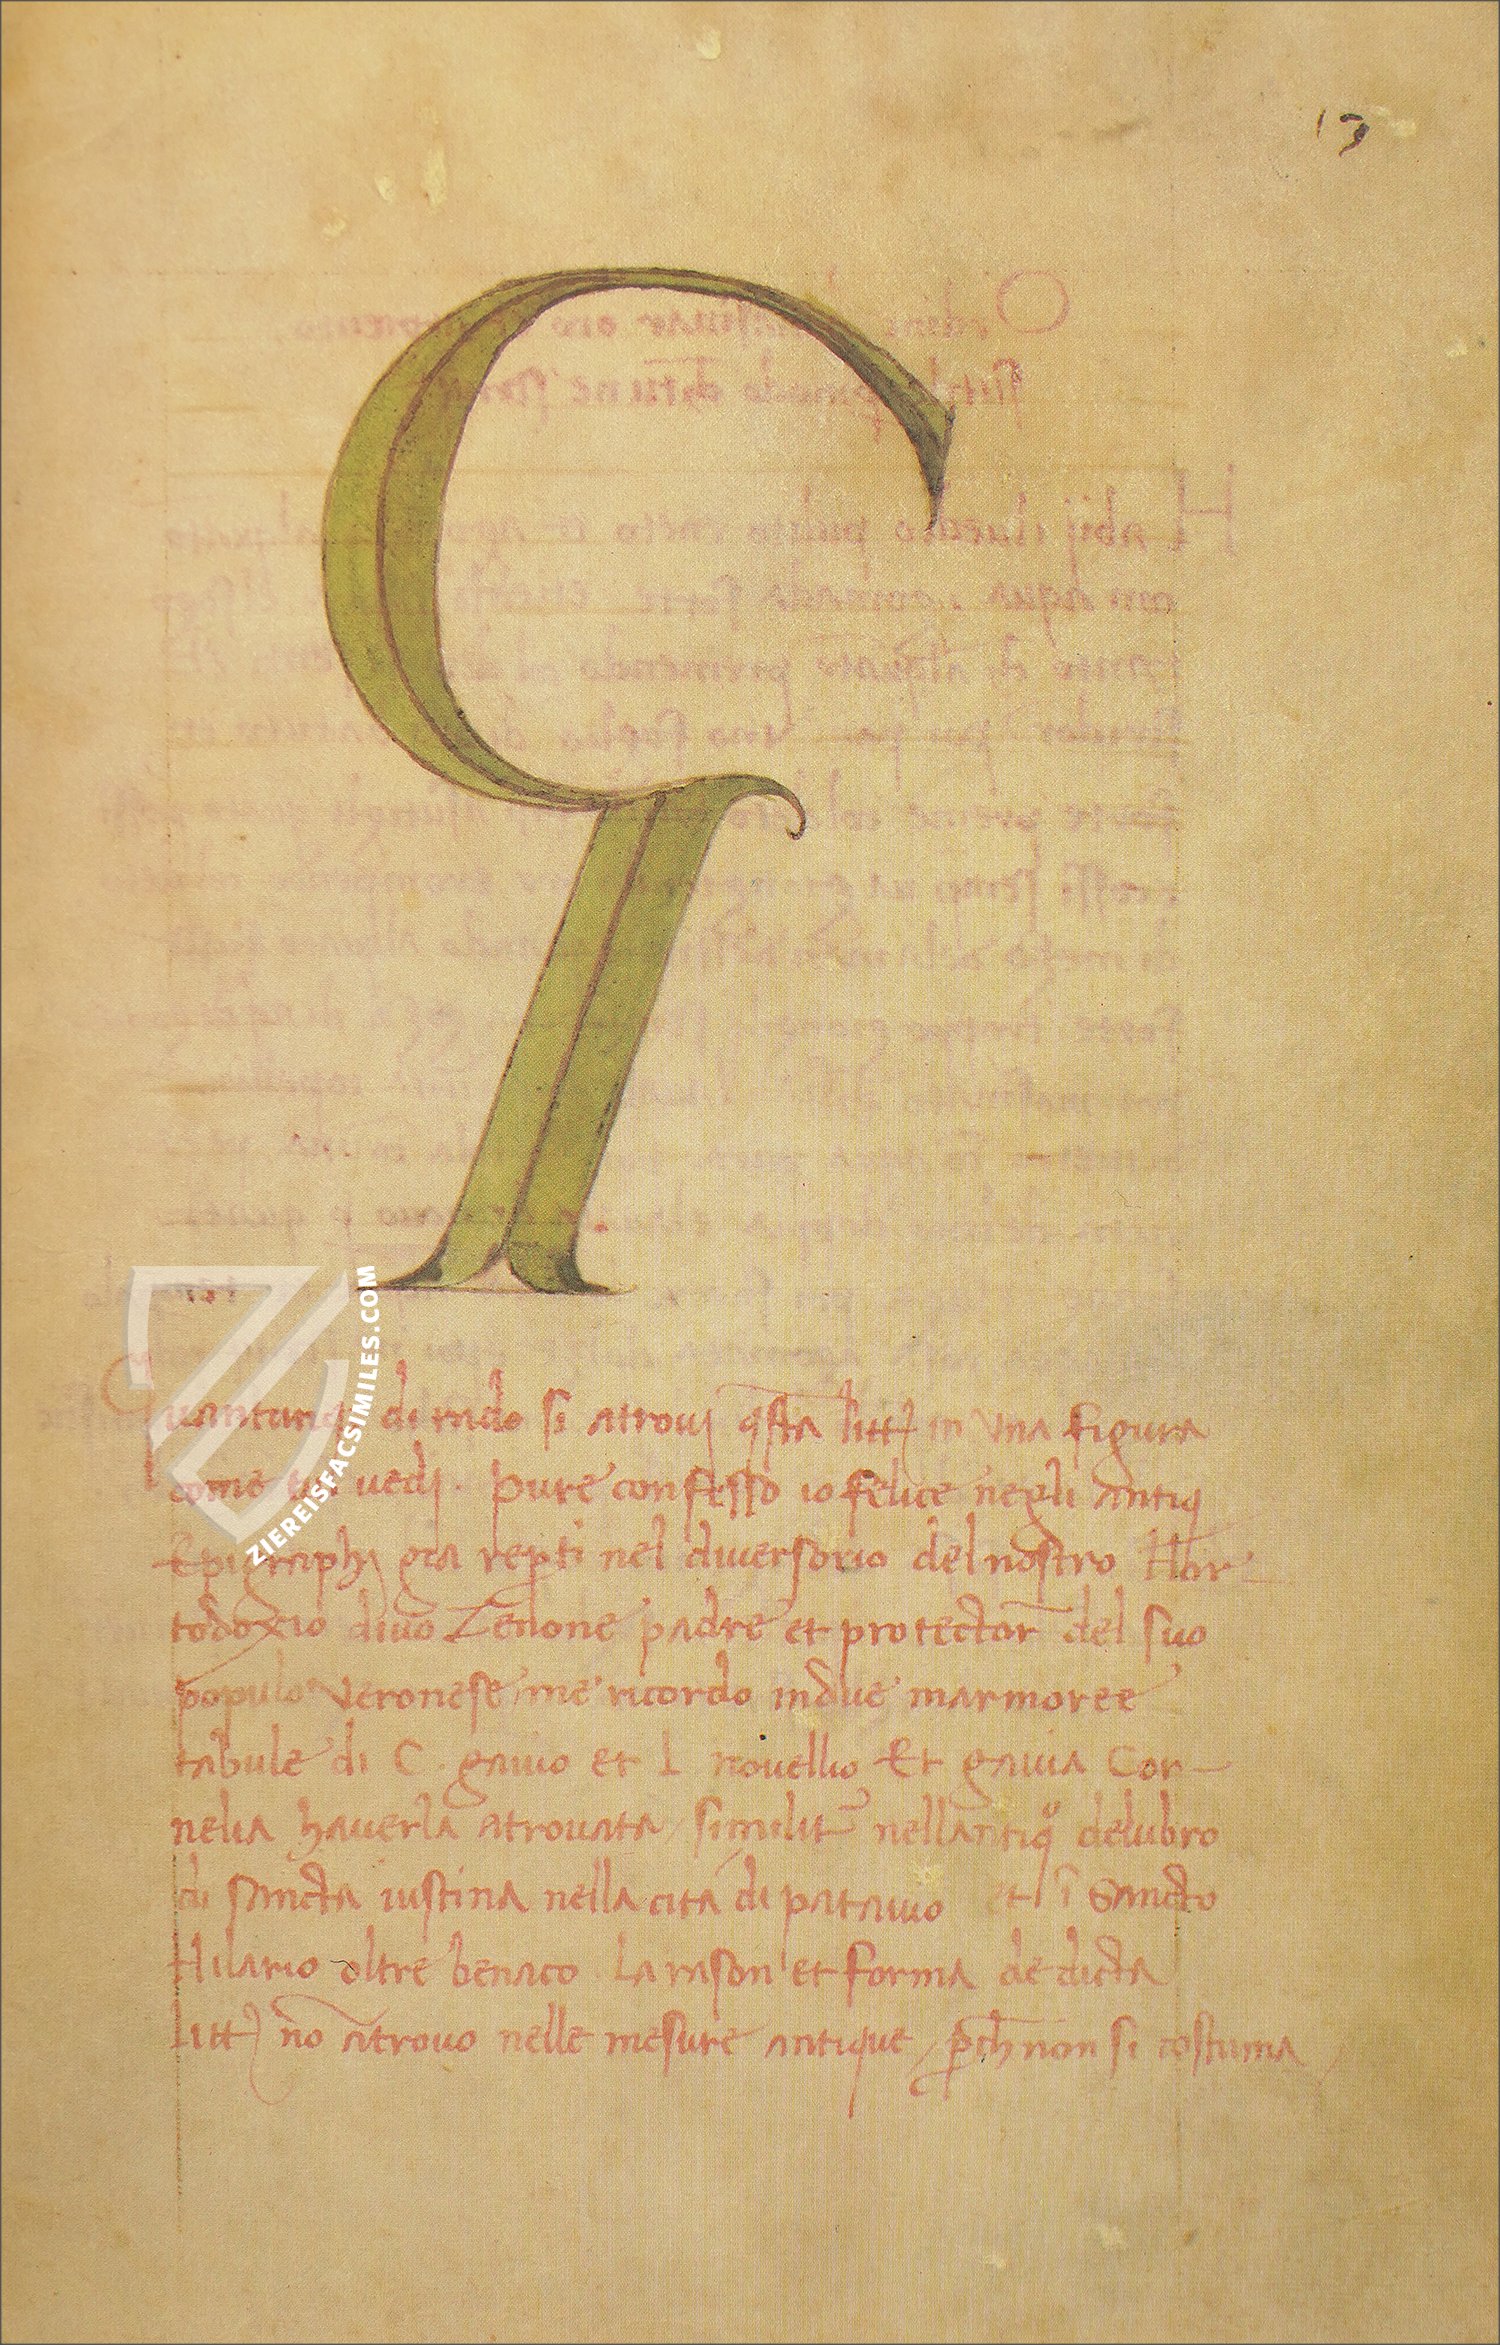 13
Quantunq di rado si atrouj qsta litt in vna figura
come tu uedj . pure confesso io felice negli antiq
Epigraphj gia repti nel diuersorio del nostro Hor
todoxio diuo Zenone padre et protector del suo
populo veronese me ricordo in due marmoree
tabule di C. gauio et L nouellio Et gauia Cor-
nelia hauerla atrouata / similit nellantiq delubro
di sancta iustina nella cita di patauio et ī Sancto
Hilario oltre benaco La rason et forma de dicta
litt nō atrouo nelle mesure antique / pch non si costuma
ZIEREISFACSIMILES.COM